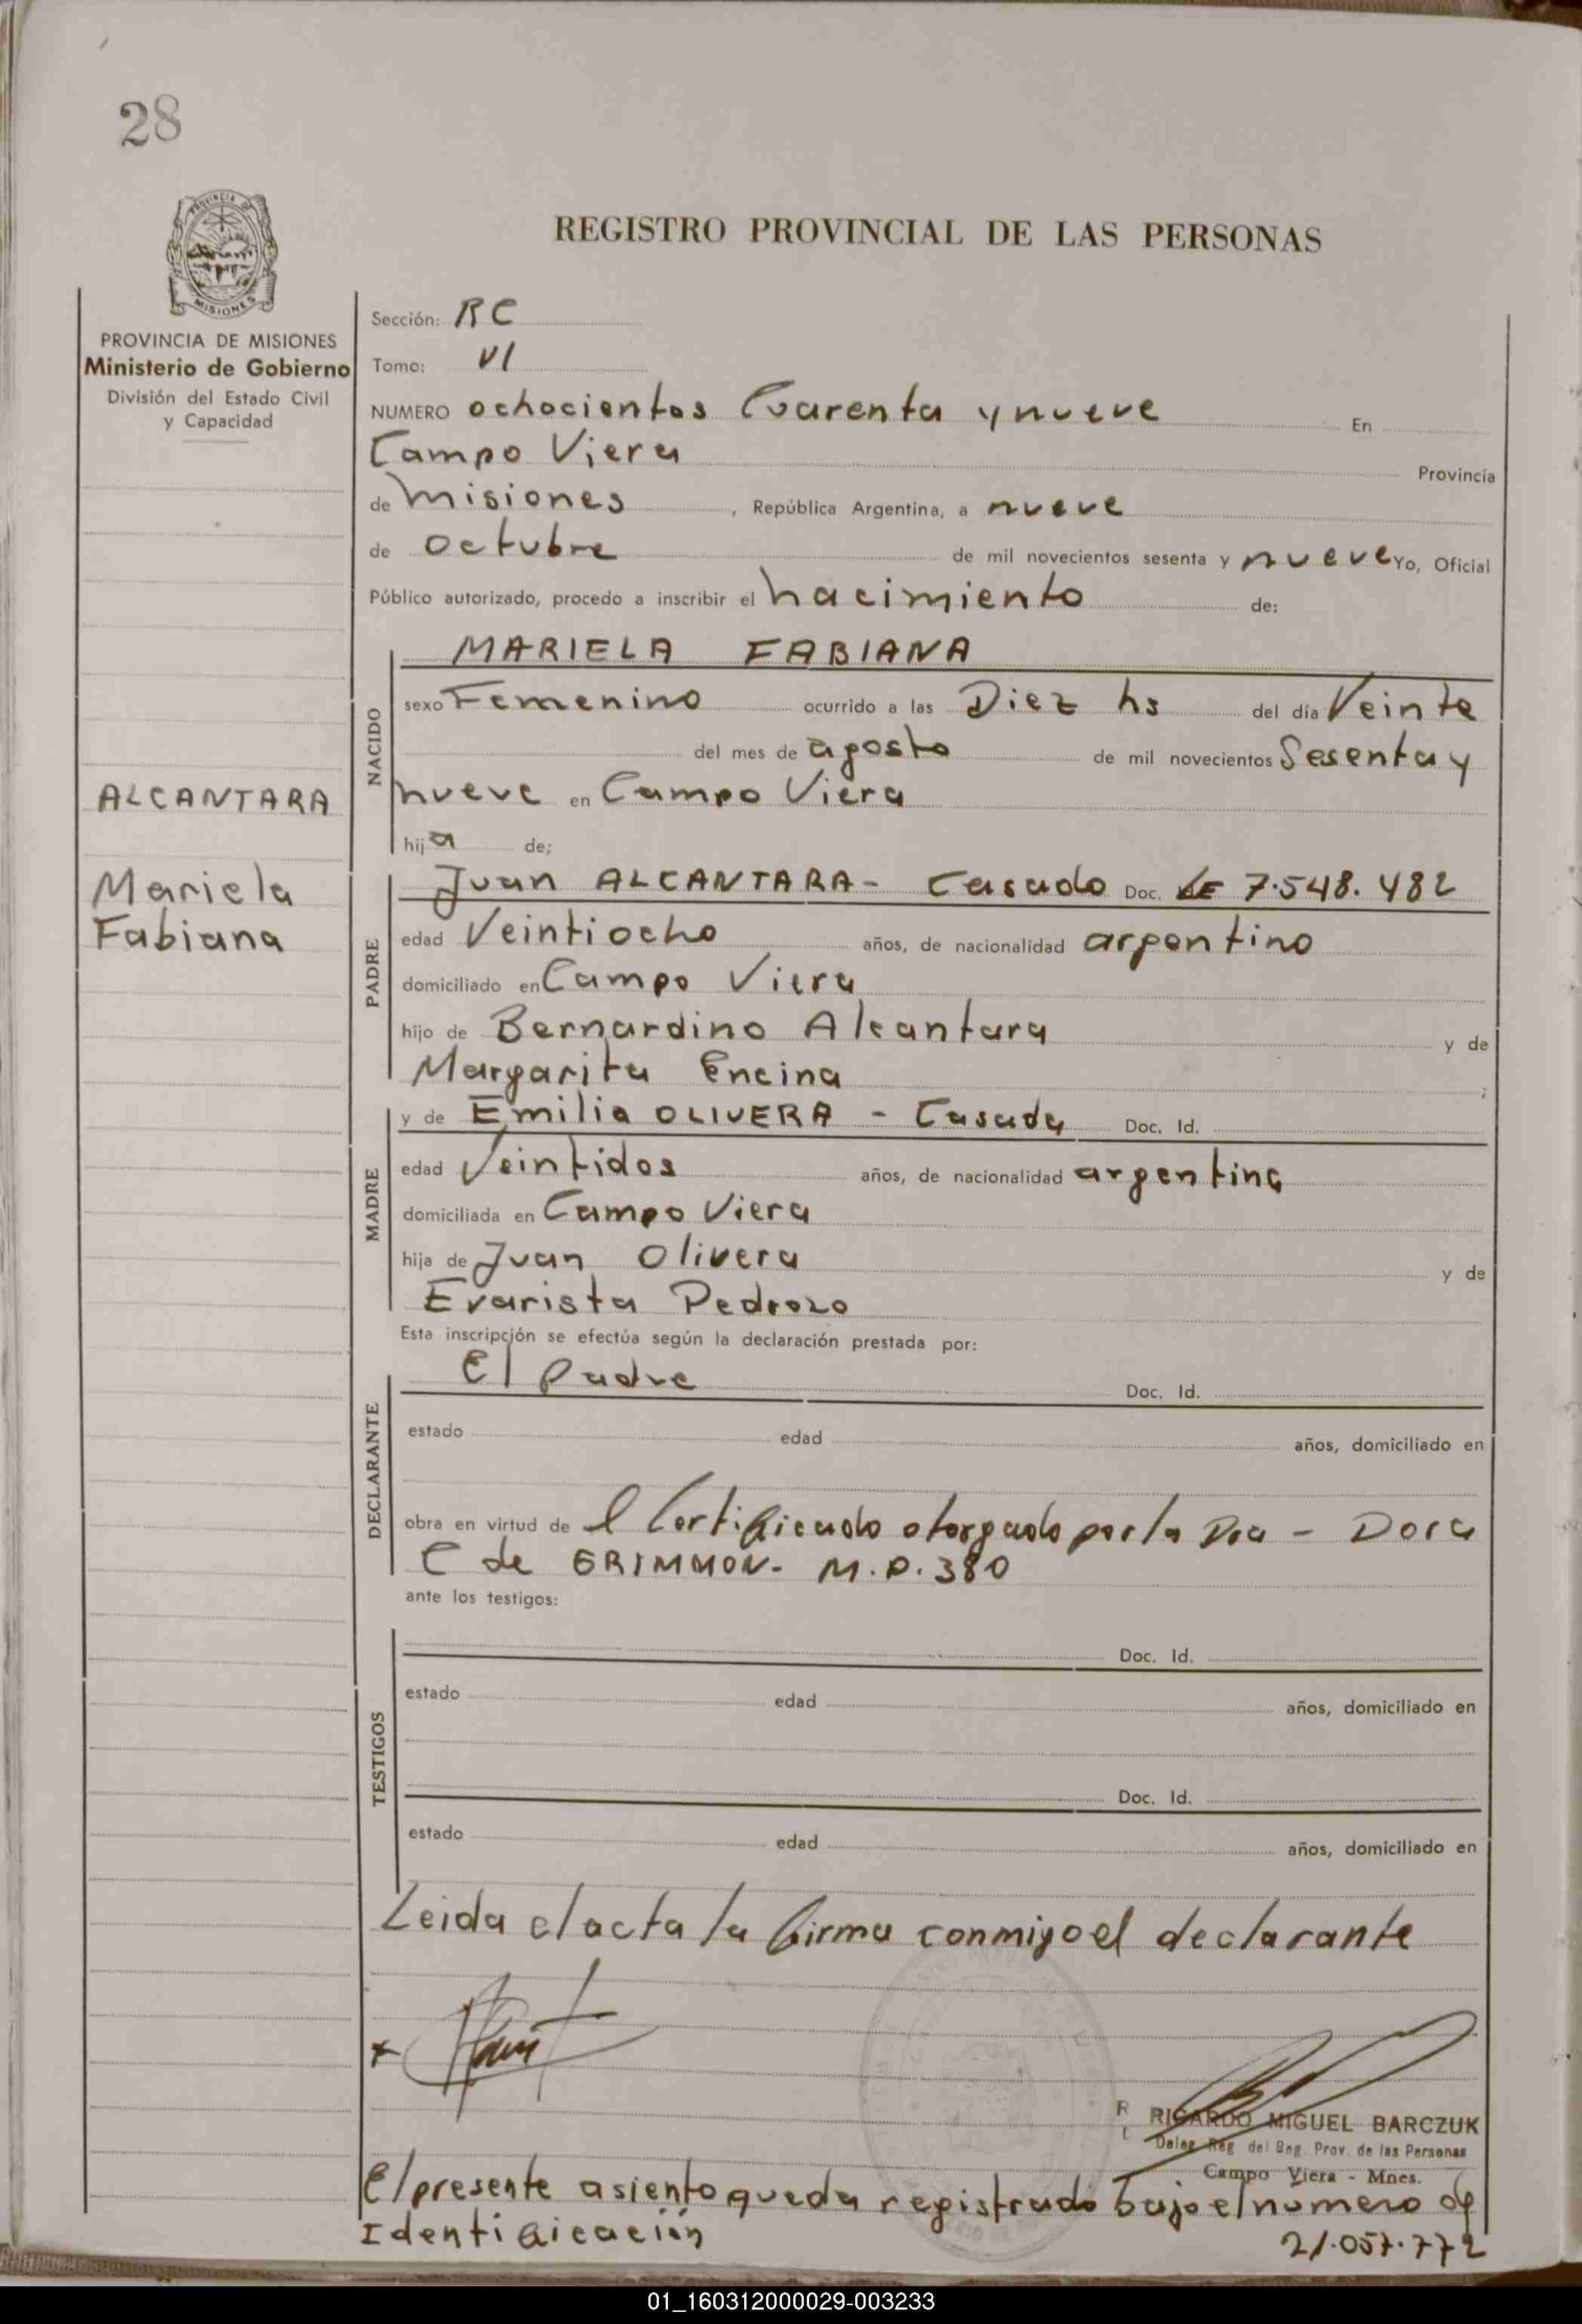 28
PROVINCIA DE MISIONES
MISIONES
PROVINCIA DE MISIONES
Ministerio de Gobierno
División del Estado Civil
y Capacidad
ALCANTARA
Mariela
Fabiana
REGISTRO PROVINCIAL DE LAS PERSONAS
Sección: RC
Tomo: VI
NUMERO ochocientos Cuarenta y nueve En
Campo Viera Provincia
de Misiones, República Argentina, a nueve
de Octubre de mil novecientos sesenta y nueve Yo, Oficial
Público autorizado, procedo a inscribir el nacimiento de:
NACIDO
MARIELA FABIANA
sexo Femenino ocurrido a las Diez hs del día Veinte
del mes de agosto de mil novecientos Sesenta y
nueve en Campo Viera
hija de;
PADRE
Juan ALCANTARA - Casado Doc. LE 7.548.482
edad Veintiocho años, de nacionalidad argentino
domiciliado en Campo Viera
hijo de Bernardino Alcantara y de
Margarita Encina ;
MADRE
y de Emilia OLIVERA - Casada Doc. Id.
edad Veintidos años, de nacionalidad argentina
domiciliada en Campo Viera
hija de Juan Olivera y de
Evarista Pedrozo
Esta inscripción se efectúa según la declaración prestada por:
DECLARANTE
El padre Doc. Id.
estado edad años, domiciliado en
obra en virtud de l Certificado otorgado por la Dra - Dora
C de GRIMMON - M.P. 380
ante los testigos:
TESTIGOS
Doc. Id.
estado edad años, domiciliado en
Doc. Id.
estado edad años, domiciliado en
Leida el acta la firma conmigo el declarante
RICARDO MIGUEL BARCZUK
Deleg Reg del Reg. Prov. de las Personas
Campo Viera - Mnes.
El presente asiento queda registrado bajo el numero de
Identificación 21.057.772
01_160312000029-003233